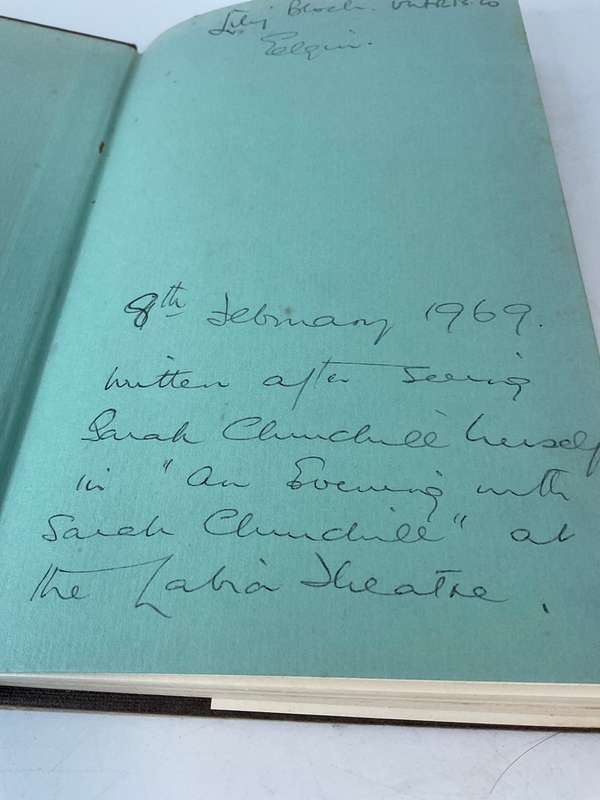 Elgin.
8th February 1969.
written after seeing
Sarah Churchill herself
in "An Evening with
Sarah Churchill" at
the Labia Theatre.